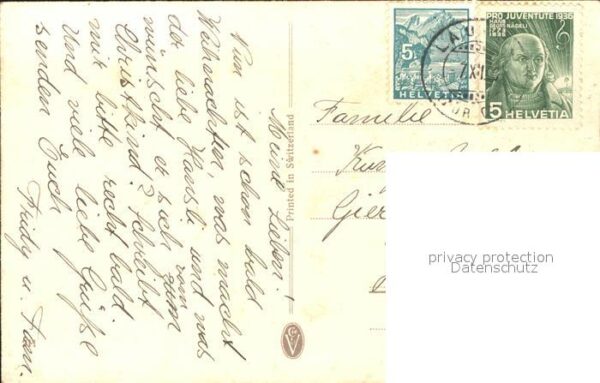 Meine Lieben!
Nun ist schon bald
Weihnachten, was macht
der liebe Hansli und was
wünscht er sich vom zum
Christkind? Schreibt
mir bitte recht bald.
Und viele liebe Grüße
senden Euch
Fridy u. Fam.
Printed in Switzerland
5
HELVETIA
PRO JUVENTUTE 1936
HANS
GEORG NÄGELI
1773
1836
5
HELVETIA
Familie
privacy protection
Datenschutz